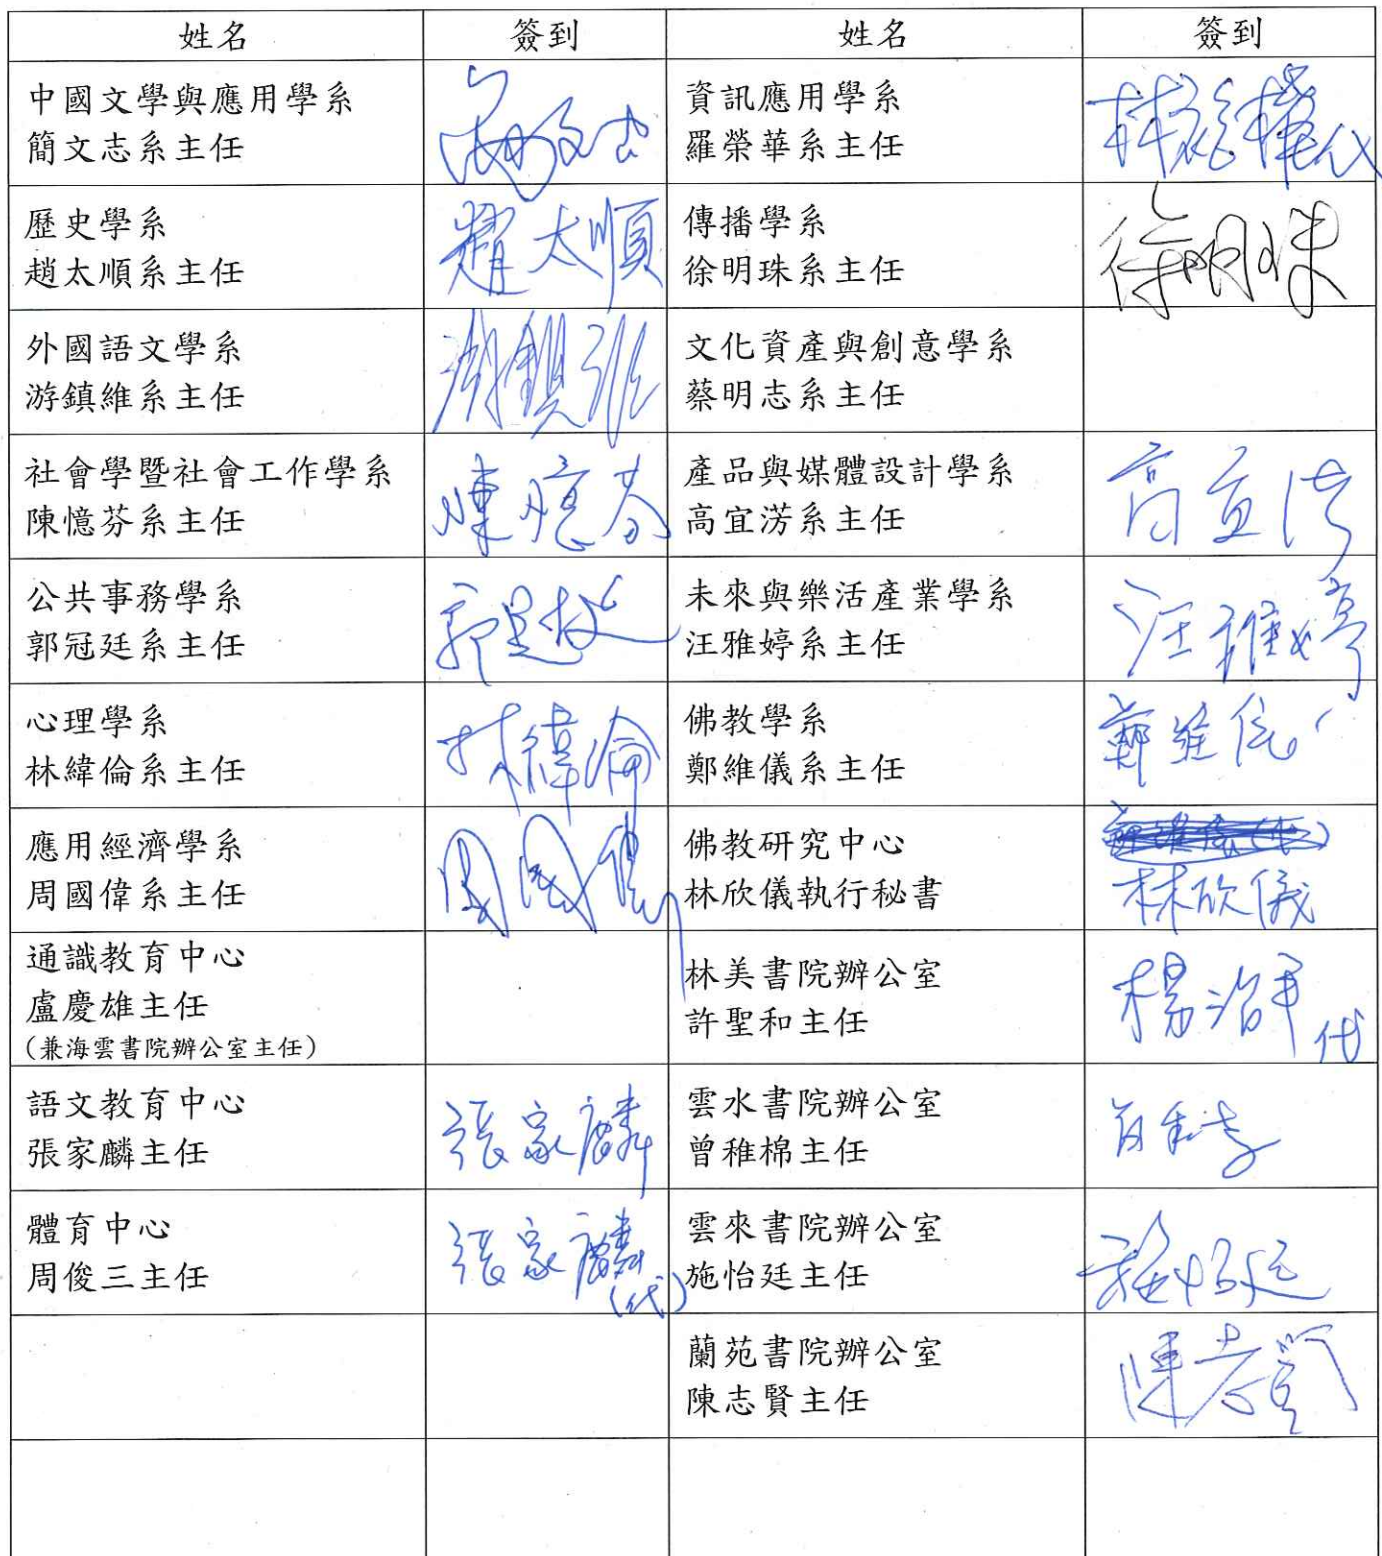 姓名 簽到 姓名 簽到
中國文學與應用學系
簡文志系主任
資訊應用學系
羅榮華系主任
代
歷史學系
趙太順系主任
趙太順
傳播學系
徐明珠系主任
徐明珠
外國語文學系
游鎮維系主任
游鎮維
文化資產與創意學系
蔡明志系主任
社會學暨社會工作學系
陳憶芬系主任
陳憶芬
產品與媒體設計學系
高宜淓系主任
高宜淓
公共事務學系
郭冠廷系主任
郭冠廷
未來與樂活產業學系
汪雅婷系主任
汪雅婷
心理學系
林緯倫系主任
林緯倫
佛教學系
鄭維儀系主任
鄭維儀
應用經濟學系
周國偉系主任
周國偉
佛教研究中心
林欣儀執行秘書
林欣儀
通識教育中心
盧慶雄主任
(兼海雲書院辦公室主任)
林美書院辦公室
許聖和主任
代
語文教育中心
張家麟主任
張家麟
雲水書院辦公室
曾稚棉主任
體育中心
周俊三主任
張家麟
(代)
雲來書院辦公室
施怡廷主任
施怡廷
蘭苑書院辦公室
陳志賢主任
陳志賢